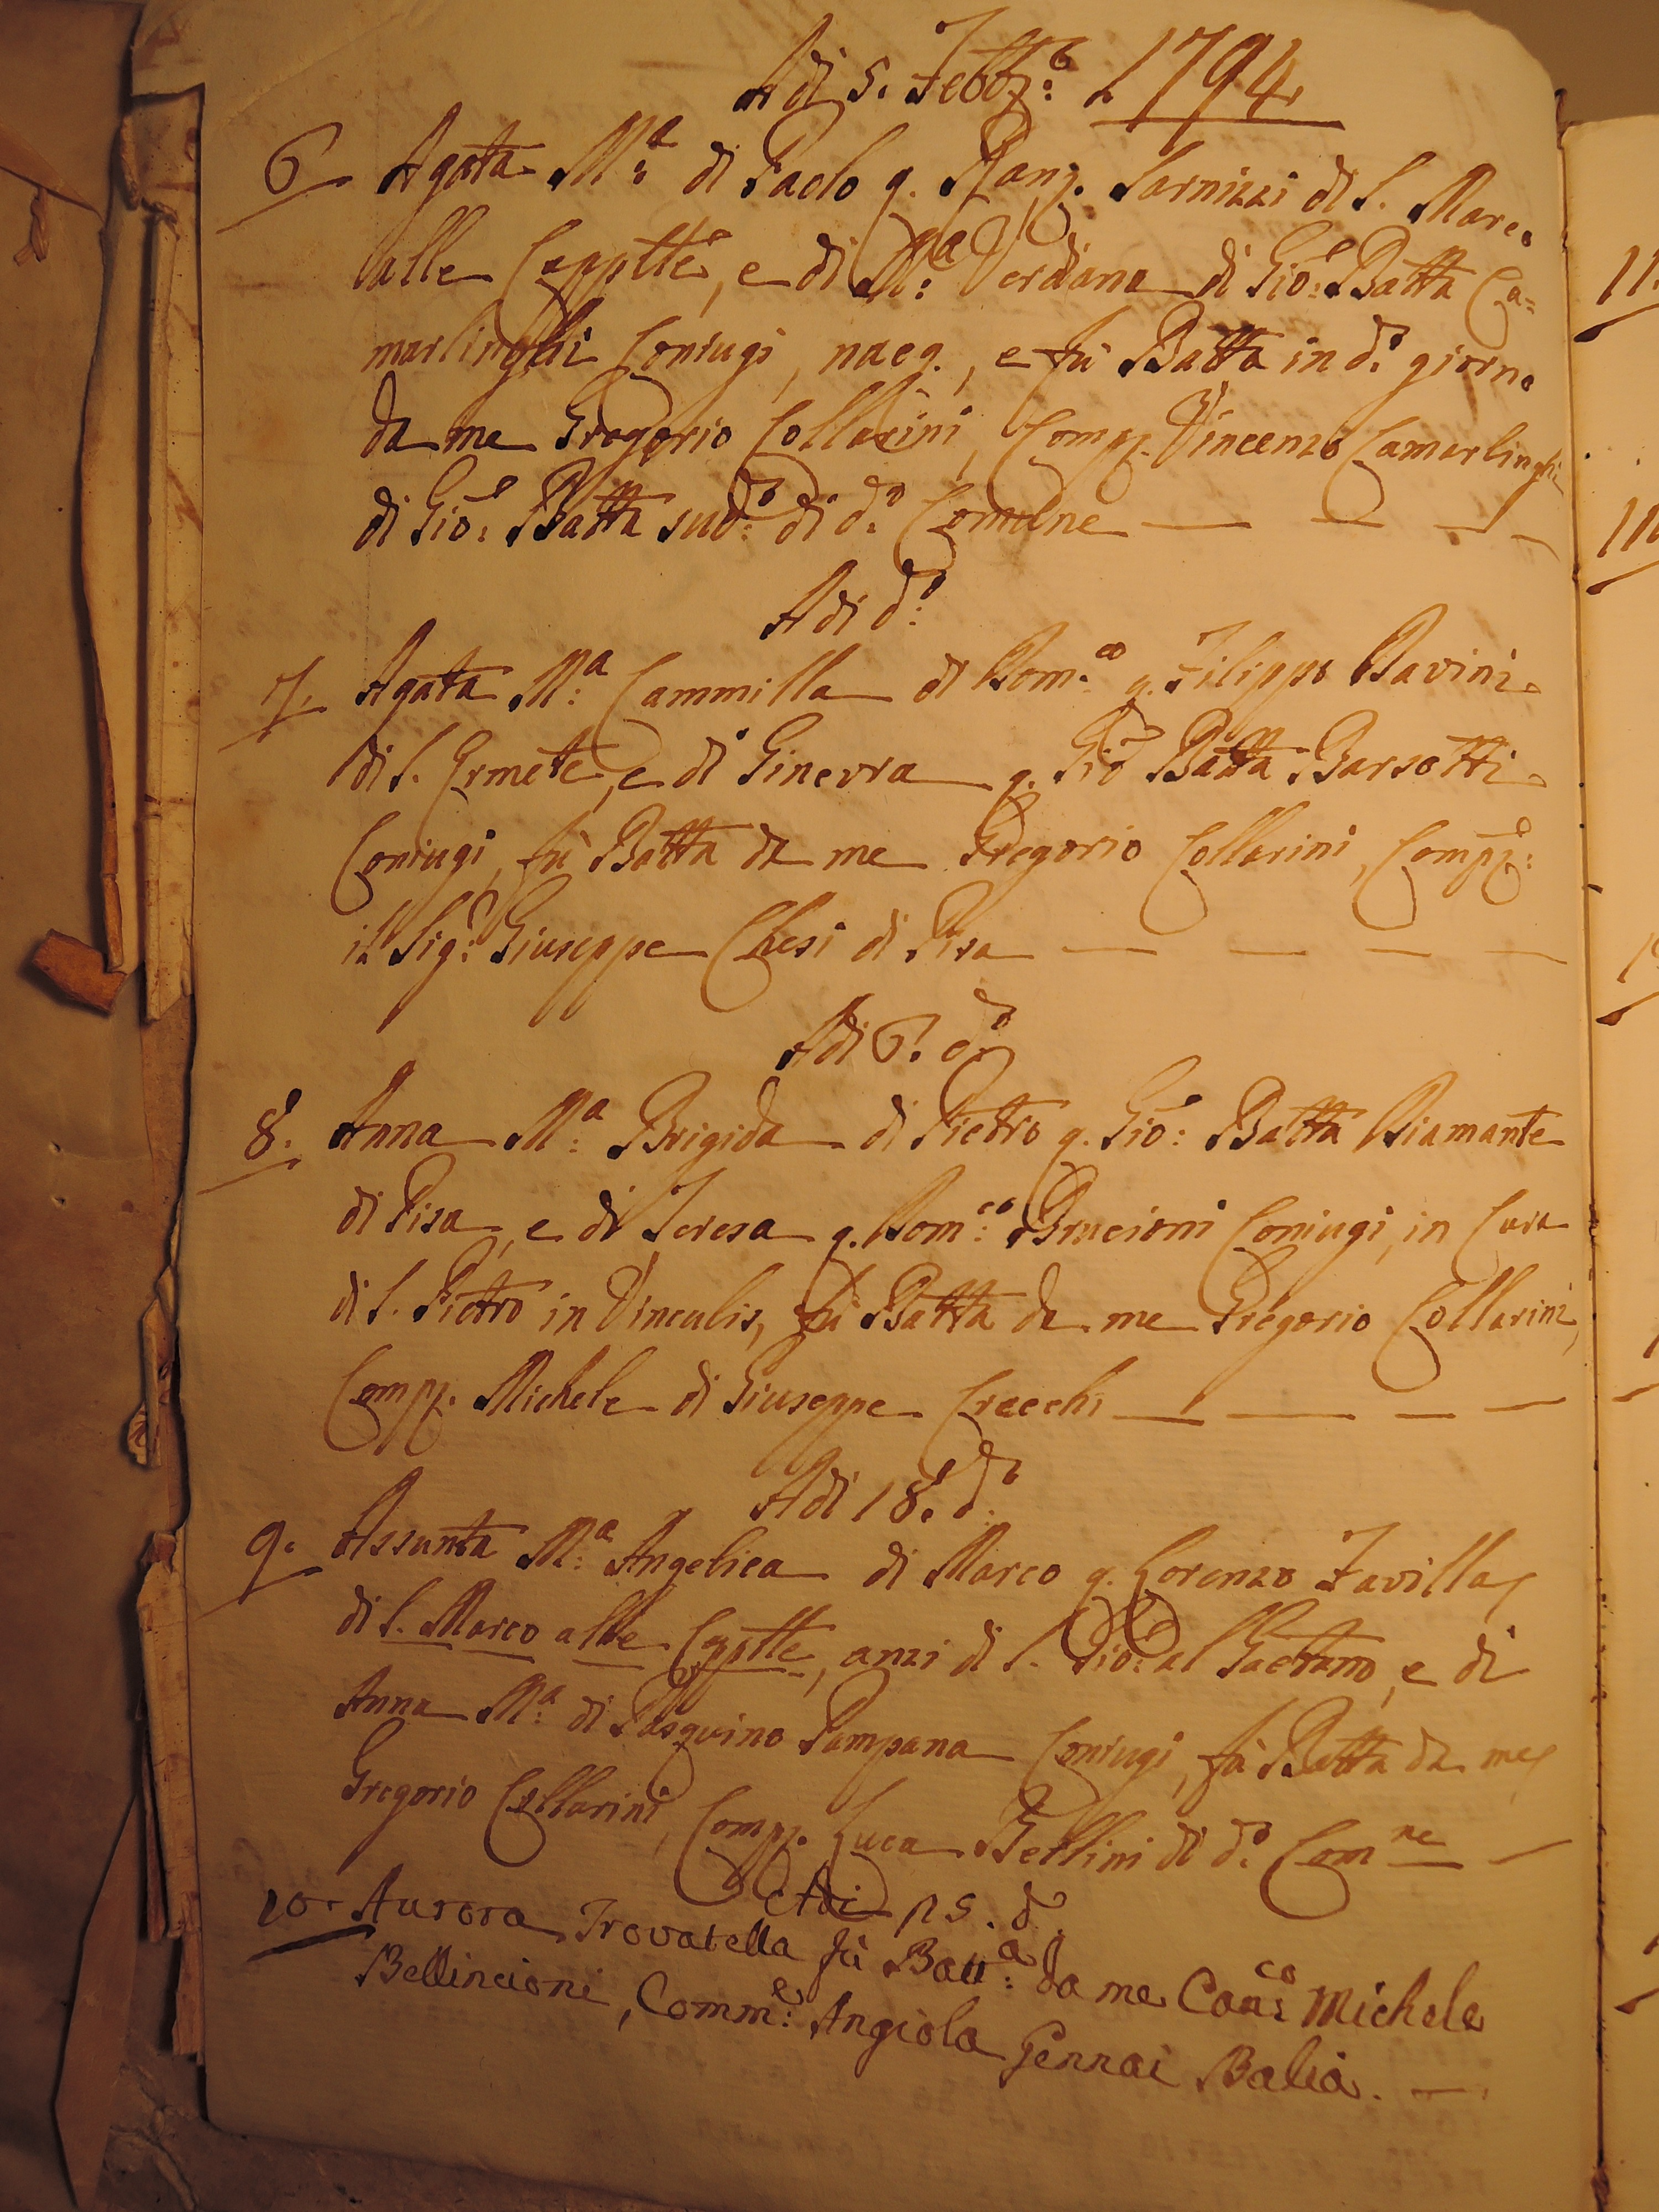 Adì 5. Febb:º 1794
6 Agata M:ª di Paolo q. Ranj. Sarnizzi di S. Marco
alle Cappttè, e di M:ª Verdiana di Gio: Batta Ca=
marlinghi Coniugi, nacq., e fù Batta in d:º giorno
da me Gregorio Collarini, Comp. Vincenzo Camarlinghi
di Gio: Batta sud:º di d:º Comune
Adi d:º
7. Agata M:ª Cammilla di Dom:co q. Filippo Davini
di S. Ermete, e di Ginevra q. Gio Batta Barsotti
Coniugi, fù Batta da me Gregorio Collarini, Comp:e
il Sig:r Giuseppe Chesi di Pisa
Adi 6: dº
8. Anna M:ª Brigida di Pietro q. Gio: Batta Diamante
di Pisa, e di Teresa q. Dom:co Brucioni Coniugi, in Cura
di S. Pietro in Vinculis, fù Batta da me Gregorio Collarini,
Comp. Michele di Giuseppe Crecchi
Adi 18. d:º
9. Assunta M:ª Angelica di Marco q. Lorenzo Favilla
di S. Marco alle Cpptte, anzi di S. Gio: al Gaetano, e di
Anna M:ª di Pasquino Pampana Coniugi, fù Batta da me
Gregorio Collarini, Comp. Luca Bellini di d:º Com:ne
Adi 25. d:
10. Aurora Trovatella fù Batt:ª da me Can:co Michele
Bellincioni, Comm:e Angiola Gennai Balia.
11.